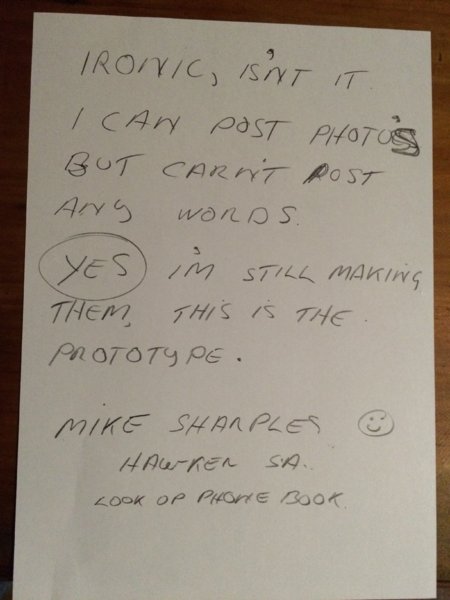 IRONIC, ISN'T IT
I CAN POST PHOTO'S
BUT CARN'T POST
ANY WORDS.
YES I'M STILL MAKING
THEM, THIS IS THE
PROTOTYPE.
MIKE SHARPLES
HAWKER S.A.
LOOK UP PHONE BOOK.